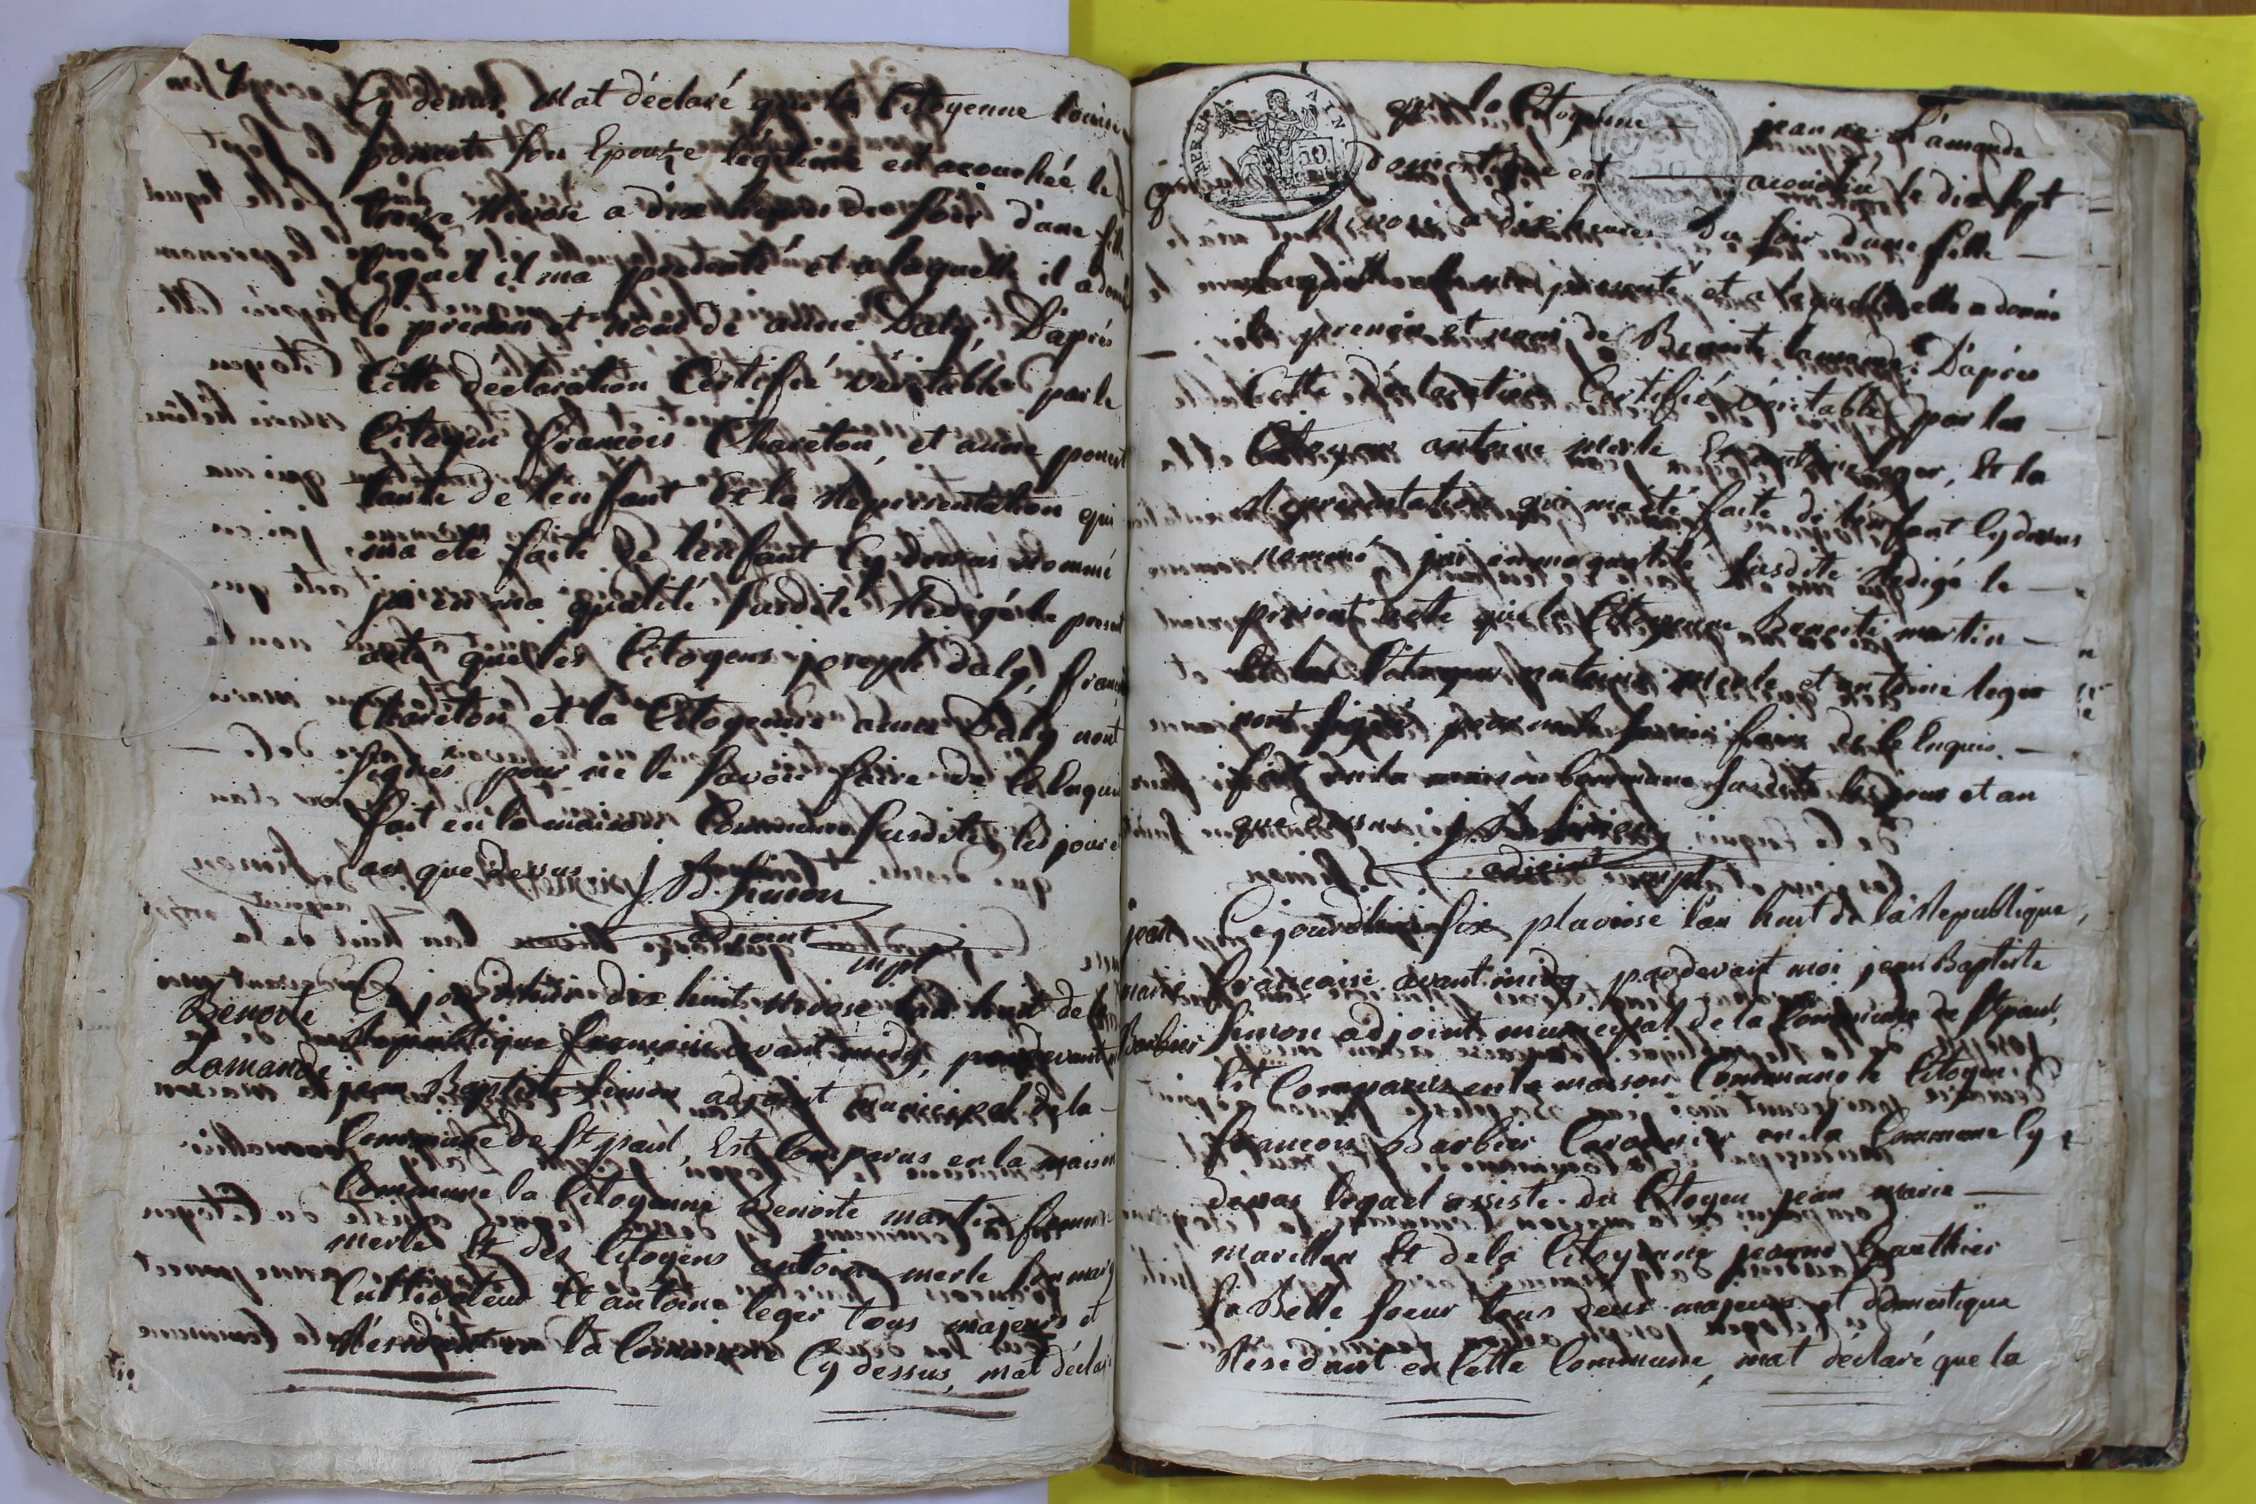 Cy dessus, Mat déclaré que la Citoyenne Louise
poncet son Epouze légitime est acouchée le
treize Nivose a dix heures du soir d'une fille
lequel il ma presenté et a laquelle il a donné
le prenom et nom de anne Daly, D'après
Cette declaration Certifié veritable par le
Citoyen françois Chareton, et anne poncet
tante de l'enfant Et la Representation qui
ma ete faite de l'enfant Cy dessus nommé
jai en ma qualité susdite Redigé le present
acte que les Citoyens joseph daly, françois
Chareton et la Citoyenne anne Daly nont
signés pour ne le savoir faire de Ce Enquis
fait en la maison Commune susdite les jour et
an que dessus J. B. Simon
adjoint
mpl
Benoite
Lamande
Cejourdhui dix huit Nivose l'an huit de la
Republique française avant midy, pardevant
jean Baptiste Simon adjoint municipal de la
Commune de St paul, Est Comparus en la maison
Commune la Citoyenne Benoite martin femme
merle Et des Citoyens antoine merle son mary
Cultivateur Et antoine leger tous majeurs et
Résidant la Commune Cy dessus, mat déclaré
que la Citoyenne jeanne Lamande
domestique est acouchée le dix sept
Nivose a dix heures du soir d'une fille
laquelle presenté et a laquelle elle a donné
le prenom et nom de Benoite lamande D'après
Cette déclaration Certifié véritable par les
Citoyens antoine merle Et antoine leger, Et la
Representation qui ma été faite de l'enfant Cy dessus
nommé jai en ma qualité susdite Redigé le
present acte que la Citoyenne Benoite martin
Et les Citoyens antoine merle et antoine leger
nont signés pour ne le savoir faire de Ce Enquis.
fait en la maison Commune susdite les jour et an
que dessus J. B. Simon
adjoint mpl
jean
marie
Barbier
Cejourdhui six pluviose l'an huit de la Republique
française avant midy pardevant moi jean Baptiste
Simon adjoint municipal de la Commune de St paul,
Est Comparus en la maison Commune le Citoyen
françois Barbier en la Commune Cy
dessus lequel assisté du Citoyen jean marie
marillon Et de la Citoyenne jeanne gauthier
sa Belle soeur tous deux majeurs et domestique
Résidant en Cette Commune, mat déclaré que la